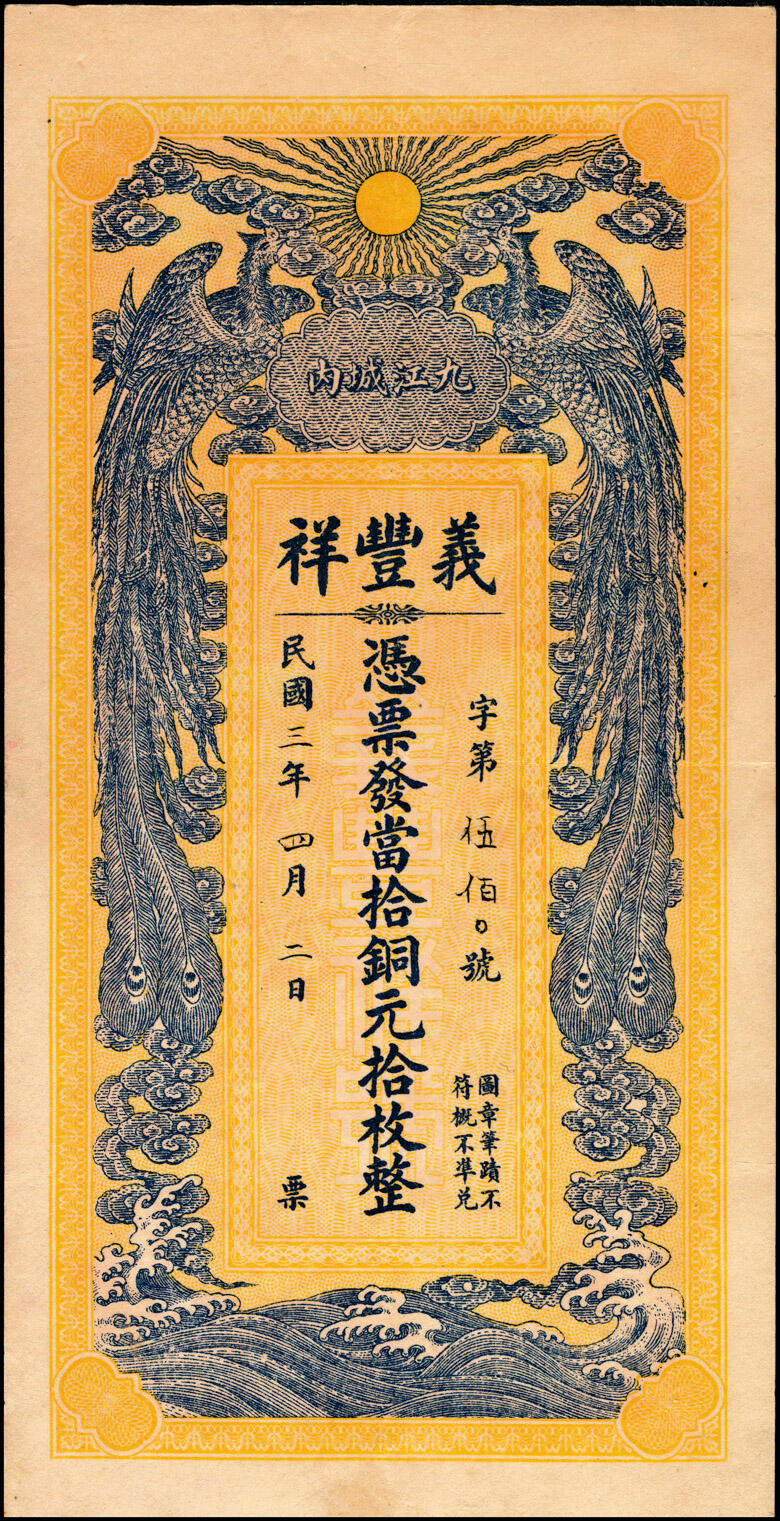 九江城內
義豐祥
字第伍佰0號
圖章筆蹟不
符概不準兌
憑票發當拾銅元拾枚整
民國三年四月二日票